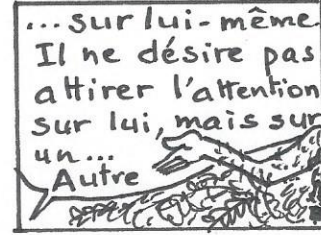 ...sur lui-même
Il ne désire pas
attirer l'attention
sur lui, mais sur
un...
Autre